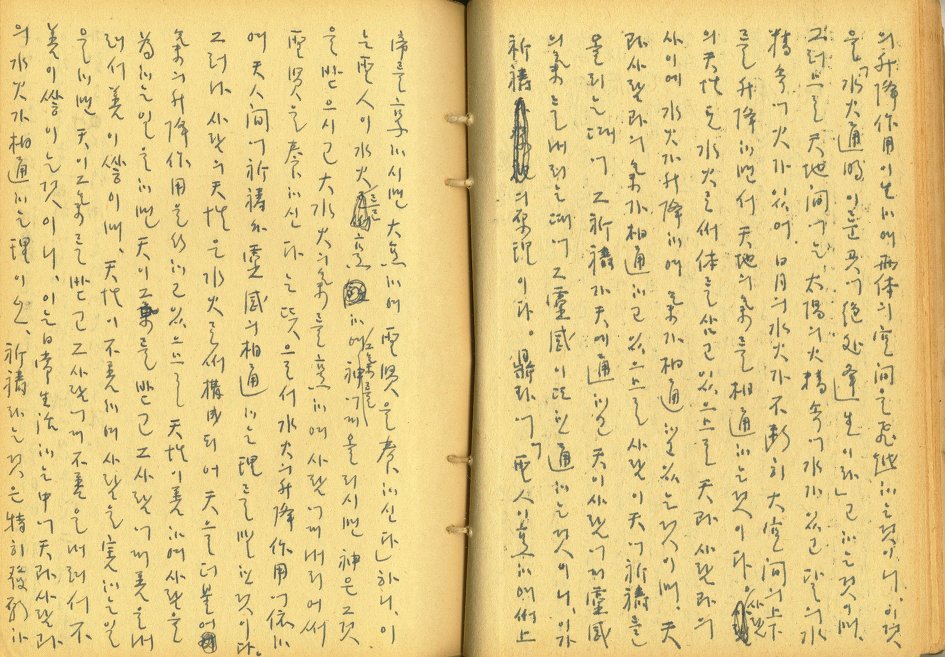 의升降作用이生하여兩体의空間을飛越하는것이니, 이것
을「水火通明이룬곳에絶処逢生이라」고하는것이며.
그러므로天地間에는太陽의火精속에水가있고달의水
精속에火가있어, 日月의水火가不断히大空間의上下
를升降하면서天地의氣를相通하는것이다, 사람
의天性도水火를써体를삼고있으므로天과사람의
사이에水火가升降하여氣가相通하고있는것이며. 天
과사람과의氣가相通하고있으므로사람이天에祈禱를
올리는때에그祈禱가天에通하고天이사람에게靈感
의氣를내리는때에그靈感이또한通하는것이니, 이가
祈禱의原理이다。鼎卦에「聖人이亨하여써上
帝를享하시며大亨하여聖賢을養하신다」하니, 이
는聖人이水火를亨하여그氣를神에게올리시면神은그것
을받으시고大水火의氣를亨하여사람에게내리어써
聖賢을養하신다는뜻으로서水火의升降作用에依하
여天人間에祈禱와靈感의相通하는理를말한것이다.
그러나사람의天性은水火로써構成되어天으로더불어
氣의升降作用을行하고있으므로天性이善하여사람을
爲하는일을하면天이그氣를받고그사람에게善을내
려서善이쌓이며, 天性이不善하여사람을害하는일
을하면天이그氣를받고그사람에게不善을내려서不
善이쌓이는것이니, 이는日常生活하는中에天과사람과
의水火가相通하는理이오, 祈禱라는것은特히發